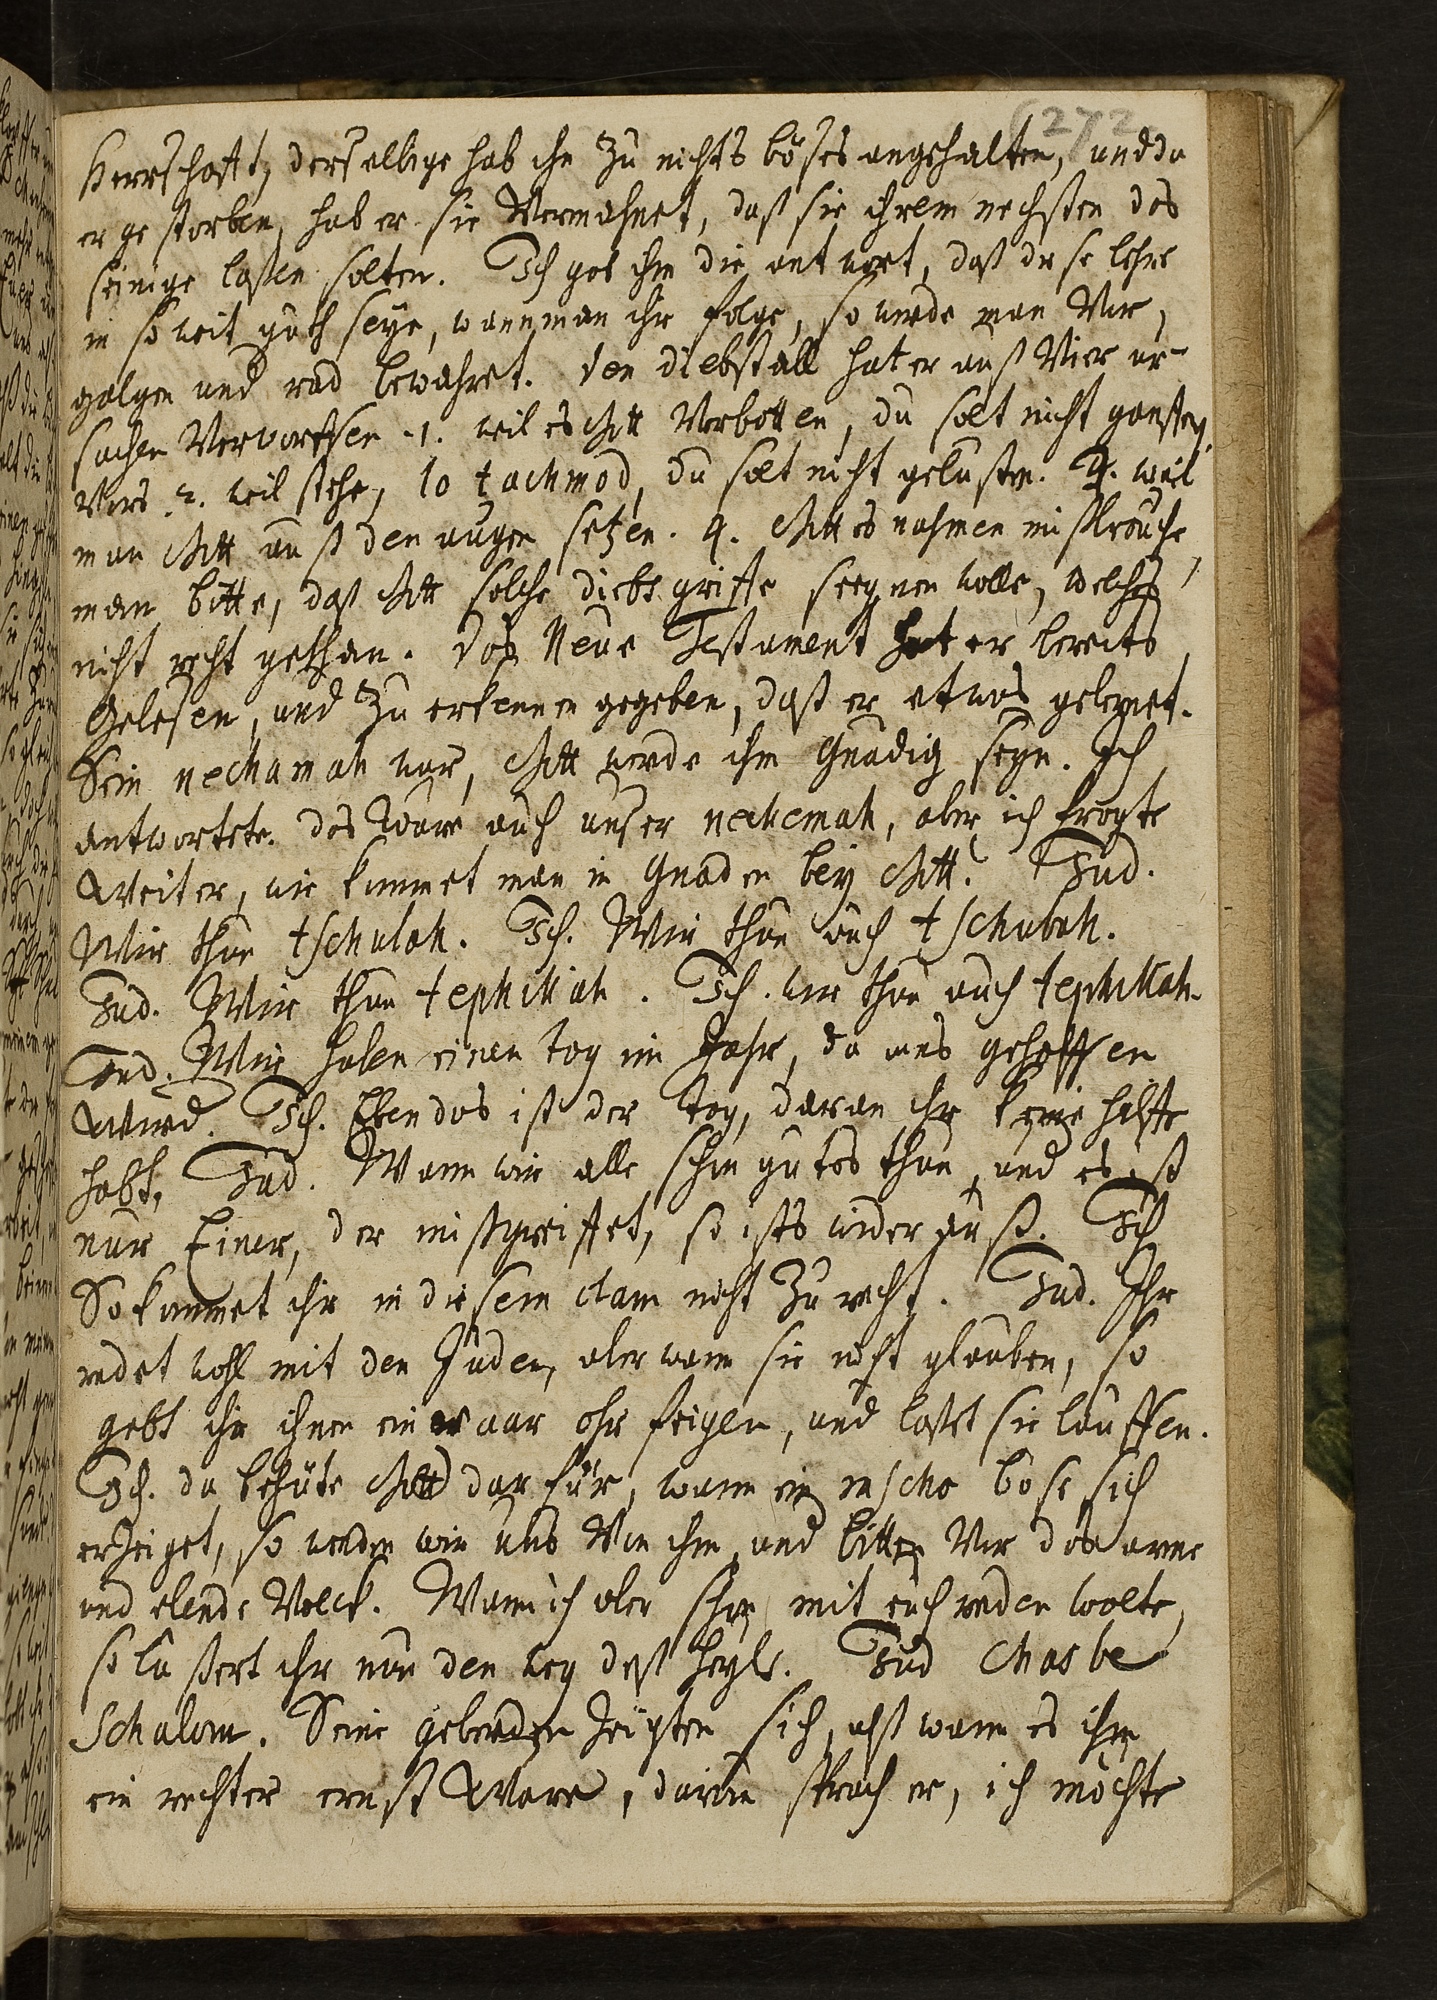 272
Herrschafft, derselbige hab ihn zu nichts böses angehalten, und da
er gestorben, hab er sie Vermahnet, daß sie ihrem nechsten das
seinige laßen solten. Ich gab ihm die antwort, daß diese lehre
in so weit guth seye, wann man ihr folge, so werde man Vor
galgen und rad bewahret. den diebstall hat er auß Vier ur-
sachen Verworffen. 1. weil es Gott Verbotten, du solt nicht
2. weil stehe, lo tachmod, du solt nicht gelusten. 3. weil
man Gott auß den augen setzen. 4. Gottes nahmen mißbrauche,
man bitte, daß Gott solche diebsgriffe seegnen wolle, welches
nicht recht gethan. Das Neue Testament hat er bereits
Gelesen, und zu erkennen gegeben, daß er etwas gelernet.
Sein nechamah war, Gott werde ihm Gnädig seyn. Ich
antwortete. das ware auch unser nechemah, aber ich fragte
Weiter, wie kommet man in Gnaden bey Gott? Jud.
Wir thun tschubah. Ich. Wir thun auch tschubah.
Jud. Wir thun tephillah. Ich. wir thun auch tephillah.
Jud. Wir haben einen tag im Jahr, da uns geholffen
Wird. Ich. Eben das ist der tag, daran ihr keine hülffe
habt. Jud. Wann wir alle schon gutes thun, und es ist
nur Einer, der mißgreiffet, so ists wider auß. Ich
So kommet ihr in diesem olam nicht zu recht. Jud. Ihr
redet wohl mit den Juden, aber wann sie nicht glauben, so
gebt ihr ihnen ein paar ohrfeigen, und laßet sie lauffen.
Ich. da behüte Gott darfür, wann ein böse sich
erzeiget, so wenden wir uns Von ihm, und bitten Vor das arme
und elende Volck. Wann ich aber schon mit euch reden wolte,
so laßert ihr nur den weg deß Heyls. Jud Chas be
Schalom. Seine geberden zeigten sich, alß wann es ihm
ein rechter ernst Ware, darum sprach er, ich möchte